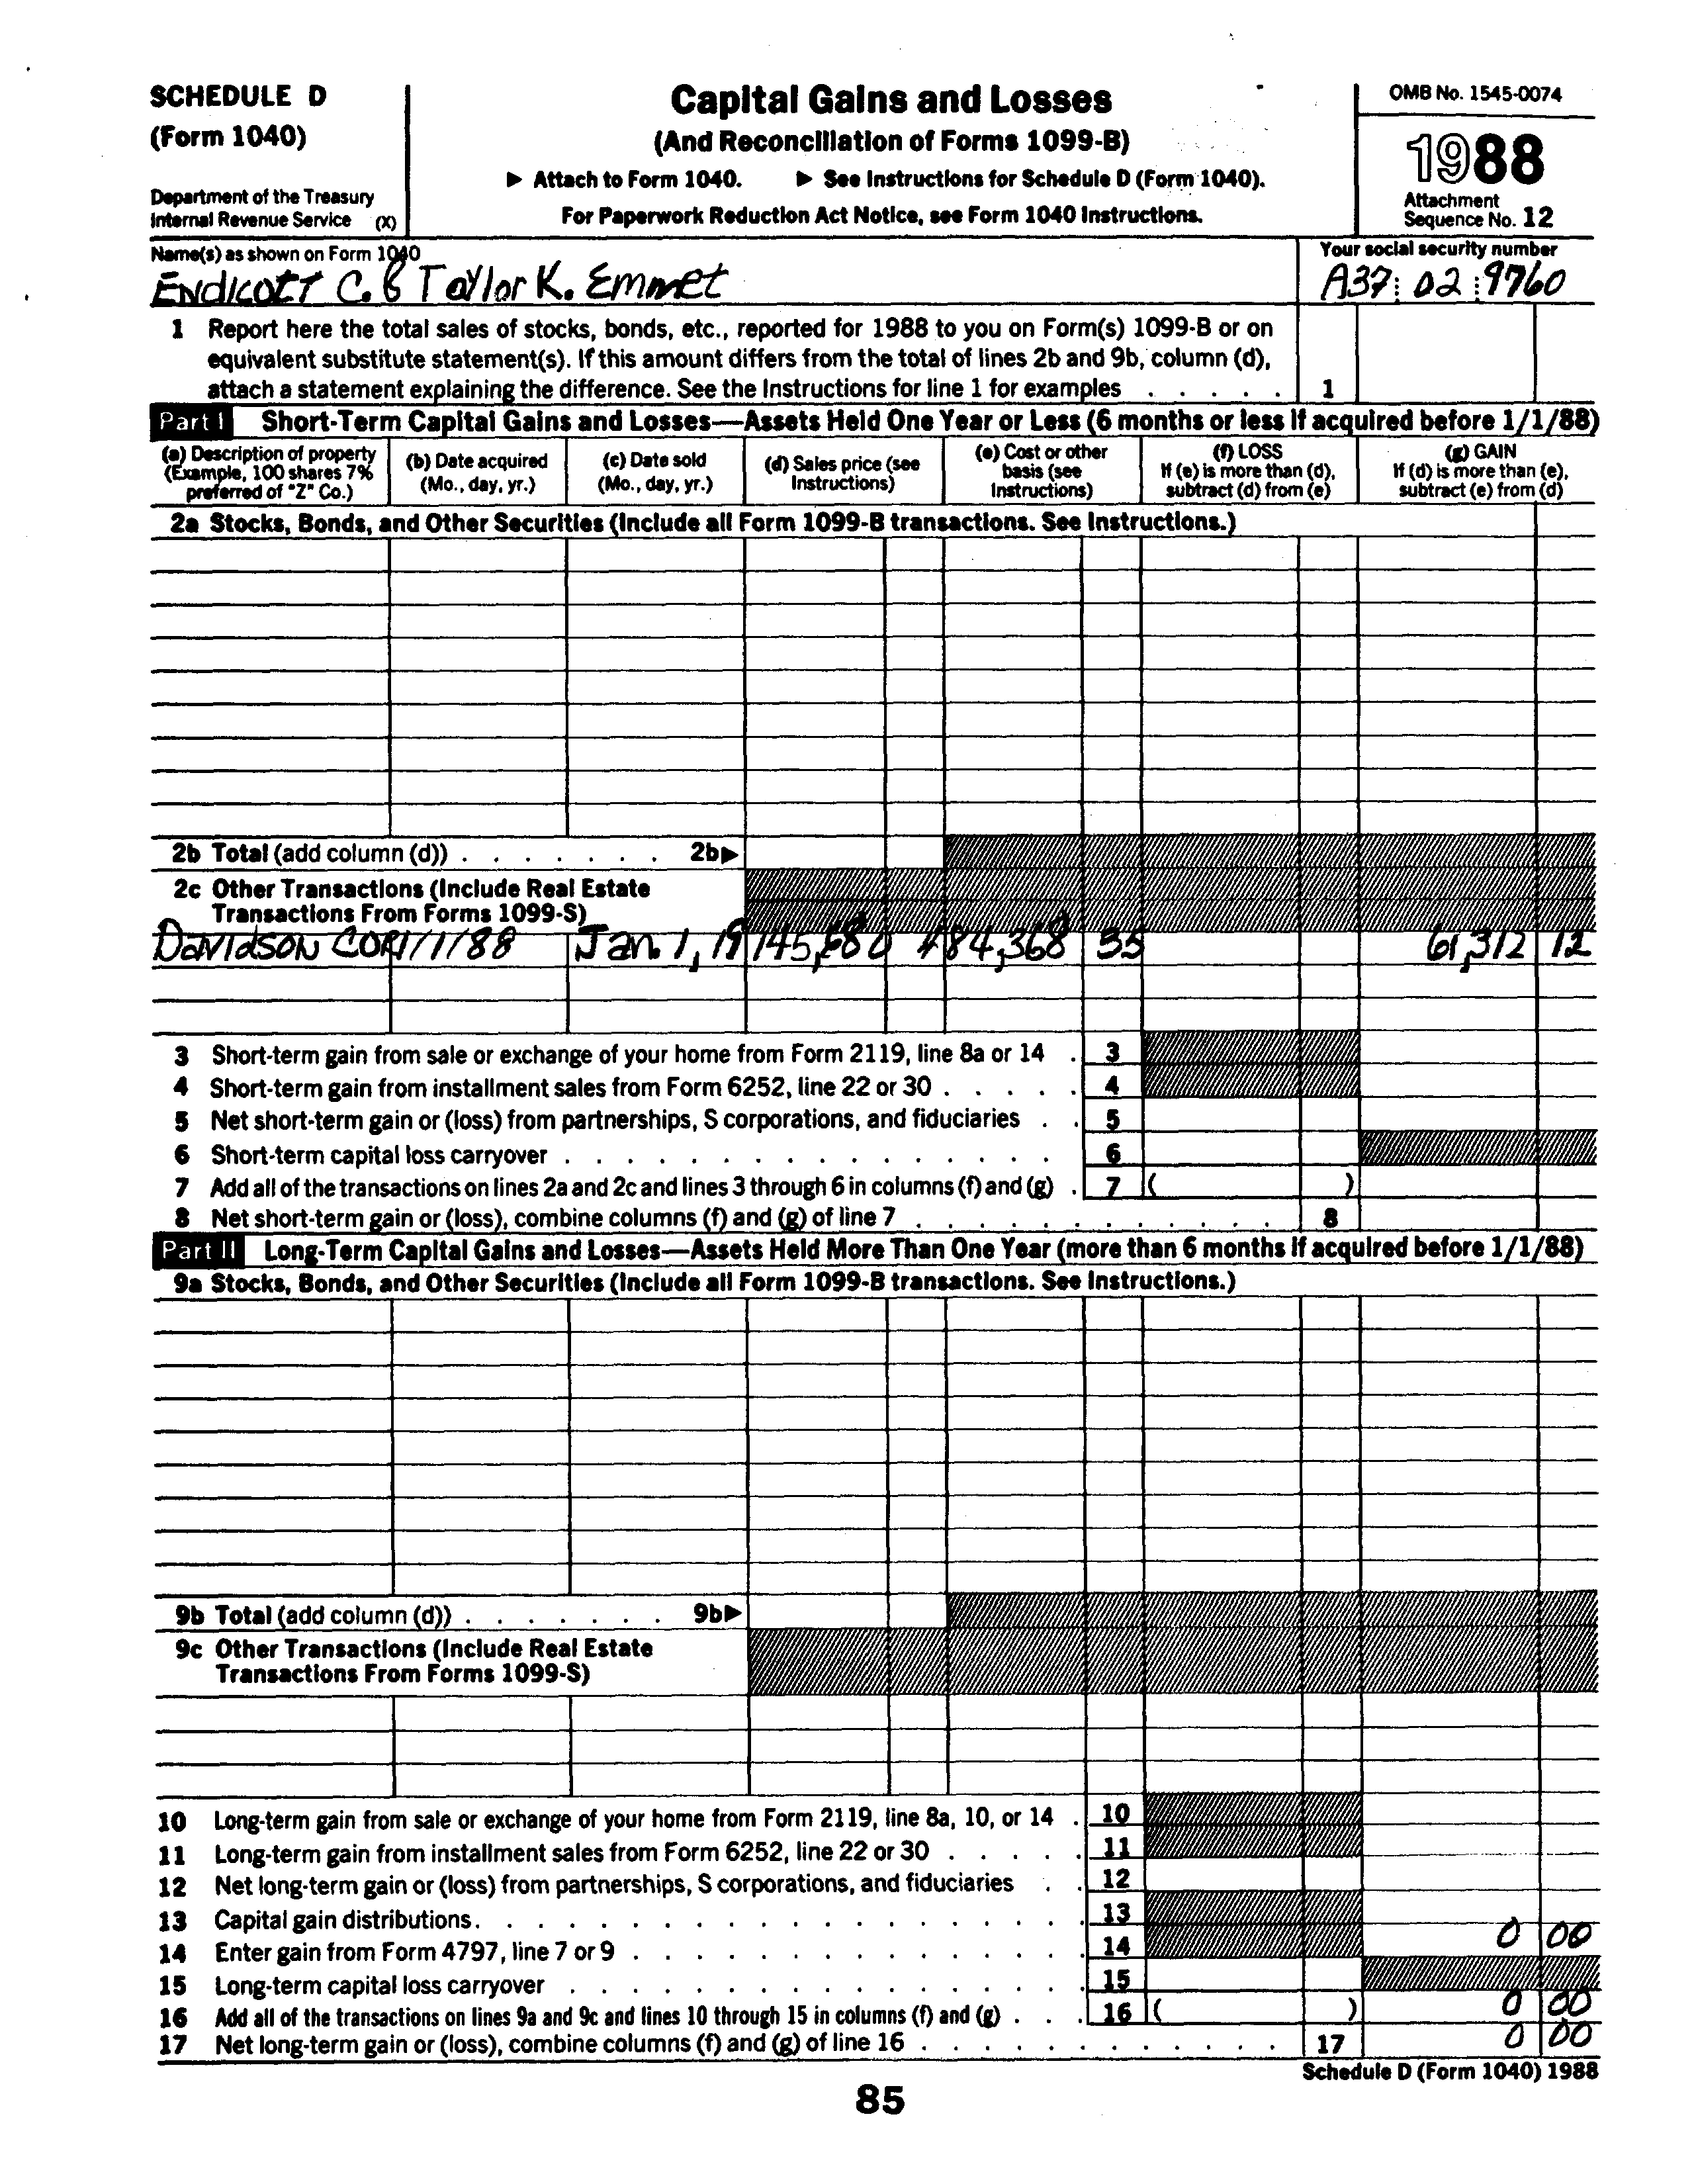 SCHEDULE D
(Form 1040)
Department of the Treasury
Internal Revenue Service (X)
Capital Gains and Losses
(And Reconciliation of Forms 1099-B)
▶ Attach to Form 1040. ▶ See Instructions for Schedule D (Form 1040).
For Paperwork Reduction Act Notice, see Form 1040 Instructions.
OMB No. 1545-0074
1988
Attachment
Sequence No. 12
Name(s) as shown on Form 1040
Endicott C. & Taylor K. Emmet
Your social security number
A37 02 9760
1 Report here the total sales of stocks, bonds, etc., reported for 1988 to you on Form(s) 1099-B or on
equivalent substitute statement(s). If this amount differs from the total of lines 2b and 9b, column (d),
attach a statement explaining the difference. See the Instructions for line 1 for examples . . . . . 1
Part I Short-Term Capital Gains and Losses—Assets Held One Year or Less (6 months or less if acquired before 1/1/88)
(a) Description of property
(Example, 100 shares 7%
preferred of "Z" Co.)
(b) Date acquired
(Mo., day, yr.)
(c) Date sold
(Mo., day, yr.)
(d) Sales price (see
Instructions)
(e) Cost or other
basis (see
Instructions)
(f) LOSS
If (e) is more than (d),
subtract (d) from (e)
(g) GAIN
If (d) is more than (e),
subtract (e) from (d)
2a Stocks, Bonds, and Other Securities (Include all Form 1099-B transactions. See Instructions.)
2b Total (add column (d)) . . . . . . . 2b▶
2c Other Transactions (Include Real Estate
Transactions From Forms 1099-S)
Davidson COR 1/1/88 Jan. 1, 19 145,680 84,368 61,312 12
3 Short-term gain from sale or exchange of your home from Form 2119, line 8a or 14 . 3
4 Short-term gain from installment sales from Form 6252, line 22 or 30 . . . . . 4
5 Net short-term gain or (loss) from partnerships, S corporations, and fiduciaries . . 5
6 Short-term capital loss carryover . . . . . . . . . . . . . . . . 6
7 Add all of the transactions on lines 2a and 2c and lines 3 through 6 in columns (f) and (g) . 7 ( )
8 Net short-term gain or (loss), combine columns (f) and (g) of line 7 . . . . . . . . . . . 8
Part II Long-Term Capital Gains and Losses—Assets Held More Than One Year (more than 6 months if acquired before 1/1/88)
9a Stocks, Bonds, and Other Securities (Include all Form 1099-B transactions. See Instructions.)
9b Total (add column (d)) . . . . . . . 9b▶
9c Other Transactions (Include Real Estate
Transactions From Forms 1099-S)
10 Long-term gain from sale or exchange of your home from Form 2119, line 8a, 10, or 14 . 10
11 Long-term gain from installment sales from Form 6252, line 22 or 30 . . . . . 11
12 Net long-term gain or (loss) from partnerships, S corporations, and fiduciaries . . 12
13 Capital gain distributions. . . . . . . . . . . . . . . . . . . 13
14 Enter gain from Form 4797, line 7 or 9 . . . . . . . . . . . . . . 14 0 00
15 Long-term capital loss carryover . . . . . . . . . . . . . . . . 15
16 Add all of the transactions on lines 9a and 9c and lines 10 through 15 in columns (f) and (g) . . . 16 ( ) 0 00
17 Net long-term gain or (loss), combine columns (f) and (g) of line 16 . . . . . . . . . . . 17 0 00
Schedule D (Form 1040) 1988
85